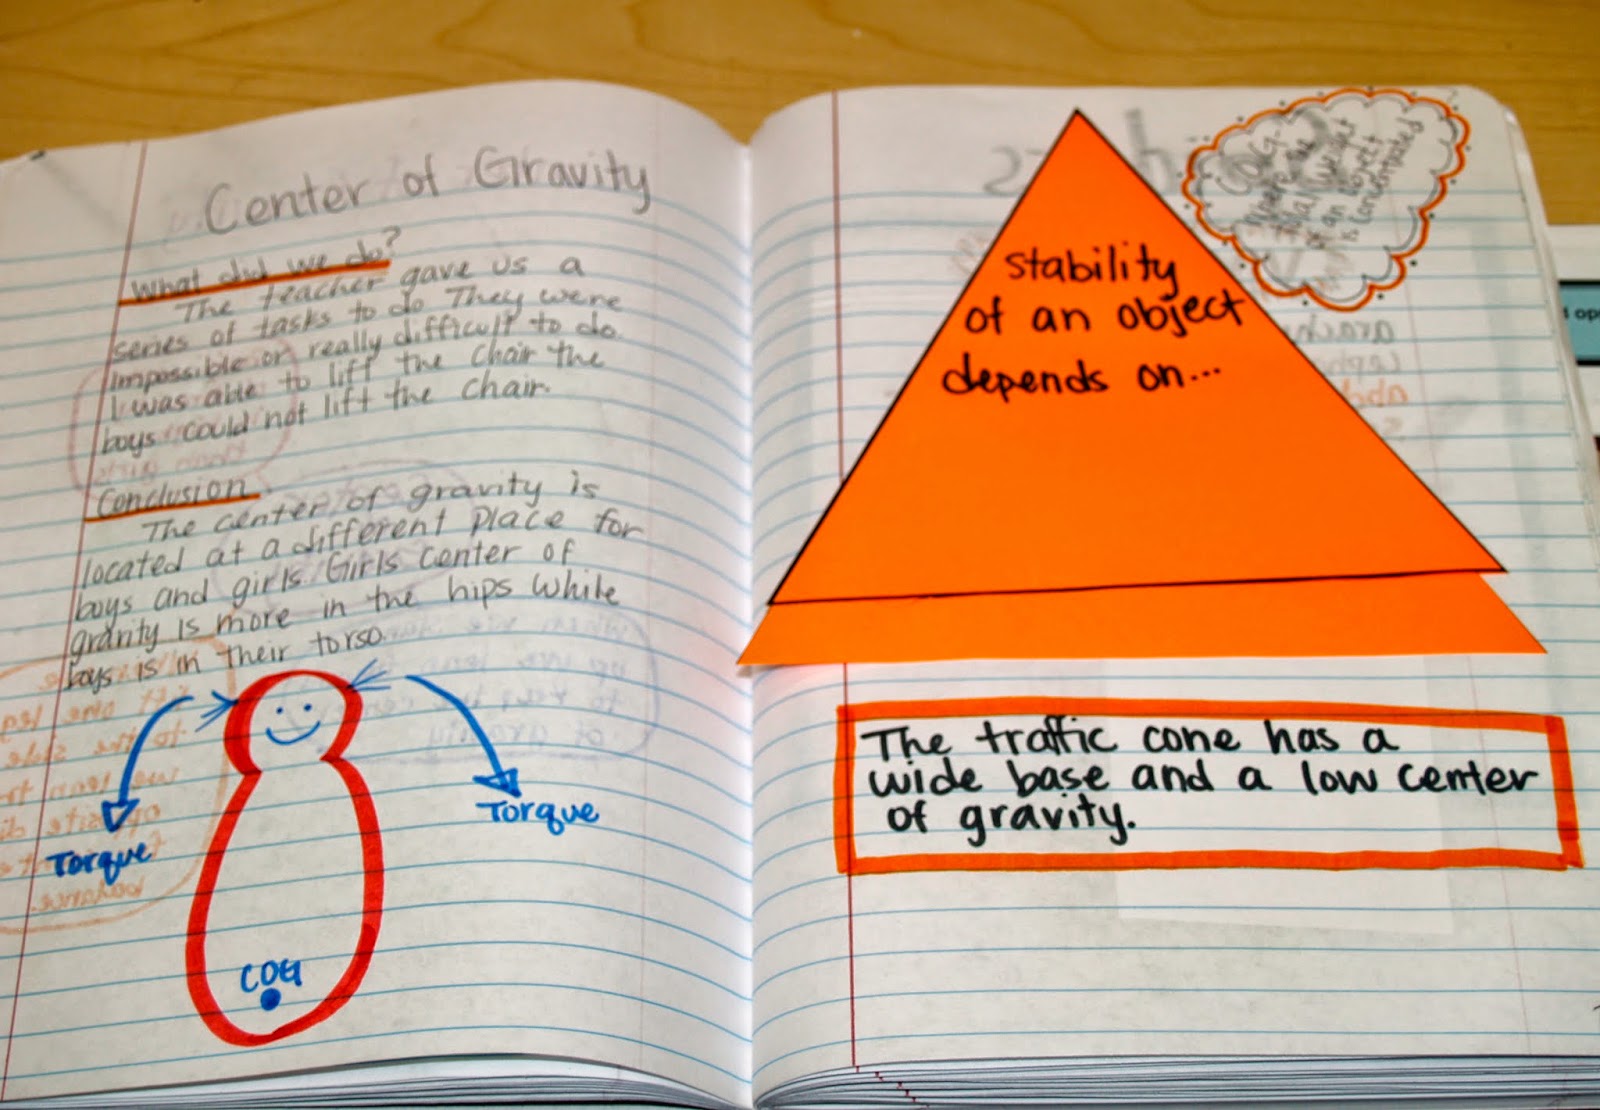 Center of Gravity
What did we do?
The teacher gave us a
series of tasks to do. They were
impossible or really difficult to do.
I was able to lift the chair the
boys could not lift the chair.
Conclusion
The center of gravity is
located at a different place for
boys and girls. Girls center of
gravity is more in the hips while
boys is in their torso.
Torque
Torque
COG
COG-
where the
of an object
is concentrated
stability
of an object
depends on...
The traffic cone has a
wide base and a low center
of gravity.